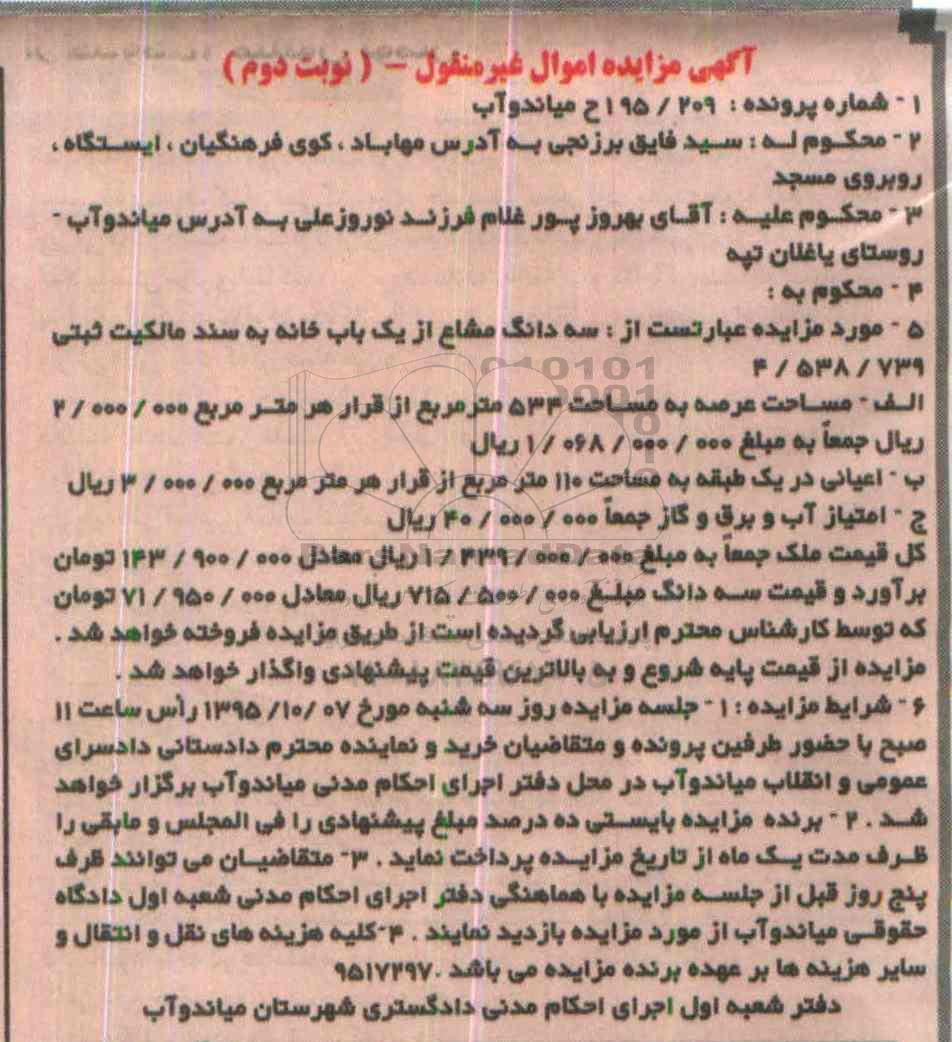 آگهی مزایده اموال غیرمنقول – ( نوبت دوم )
۱ - شماره پرونده : ۲۰۹ / ۱۹۵ح میاندوآب
۲ - محکـوم لـه : سـید فایق برزنجی بـه آدرس مهابـاد ، کوی فرهنگیان ، ایسـتگاه ،
روبروی مسجد
۳ - محکـوم علیـه : آقـای بهروز پـور غلام فرزنـد نوروزعلی بـه آدرس میاندوآب -
روستای یاغلان تپه
۴ - محکوم به :
۵ - مورد مزایده عبارتست از : سه دانگ مشاع از یک باب خانه به سند مالکیت ثبتی
۷۳۹ / ۵۳۸ / ۴
الـف - مسـاحت عرصه به مسـاحت ۵۳۴ مترمربع از قرار هر متـر مربع ۰۰۰ / ۰۰۰ / ۲
ریال جمعاً به مبلغ ۰۰۰ / ۰۰۰ / ۰۶۸ / ۱ ریال
ب - اعیانی در یک طبقه به مساحت ۱۱۰ متر مربع از قرار هر متر مربع ۰۰۰ / ۰۰۰ / ۳ ریال
ج - امتیاز آب و برق و گاز جمعاً ۰۰۰ / ۰۰۰ / ۴۰ ریال
کل قیمت ملک جمعاً به مبلغ ۰۰۰ / ۰۰۰ / ۴۳۹ / ۱ ریال معادل ۰۰۰ / ۹۰۰ / ۱۴۳ تومان
برآورد و قیمت سـه دانگ مبلـغ ۰۰۰ / ۵۰۰ / ۷۱۵ ریال معادل ۰۰۰ / ۹۵۰ / ۷۱ تومان
که توسط کارشناس محترم ارزیابی گردیده است از طریق مزایده فروخته خواهد شد .
مزایده از قیمت پایه شروع و به بالاترین قیمت پیشنهادی واگذار خواهد شد .
۶ - شرایط مزایده : ۱ - جلسه مزایده روز سه شنبه مورخ ۰۷ /۱۰/ ۱۳۹۵ رأس ساعت ۱۱
صبح با حضور طرفین پرونده و متقاضیان خرید و نماینده محترم دادستانی دادسرای
عمومی و انقلاب میاندوآب در محل دفتر اجرای احکام مدنی میاندوآب برگزار خواهد
شـد . ۲ - برنده مزایده بایسـتی ده درصد مبلغ پیشنهادی را فی المجلس و مابقی را
ظـرف مدت یـک ماه از تاریخ مزایـده پرداخت نماید . ۳- متقاضیـان می توانند ظرف
پنج روز قبل از جلسـه مزایده با هماهنگی دفتر اجرای احکام مدنی شعبه اول دادگاه
حقوقـی میاندوآب از مورد مزایده بازدید نمایند . ۴-کلیه هزینه های نقل و انتقال و
سایر هزینه ها بر عهده برنده مزایده می باشد .۹۵۱۷۲۹۷
دفتر شعبه اول اجرای احکام مدنی دادگستری شهرستان میاندوآب